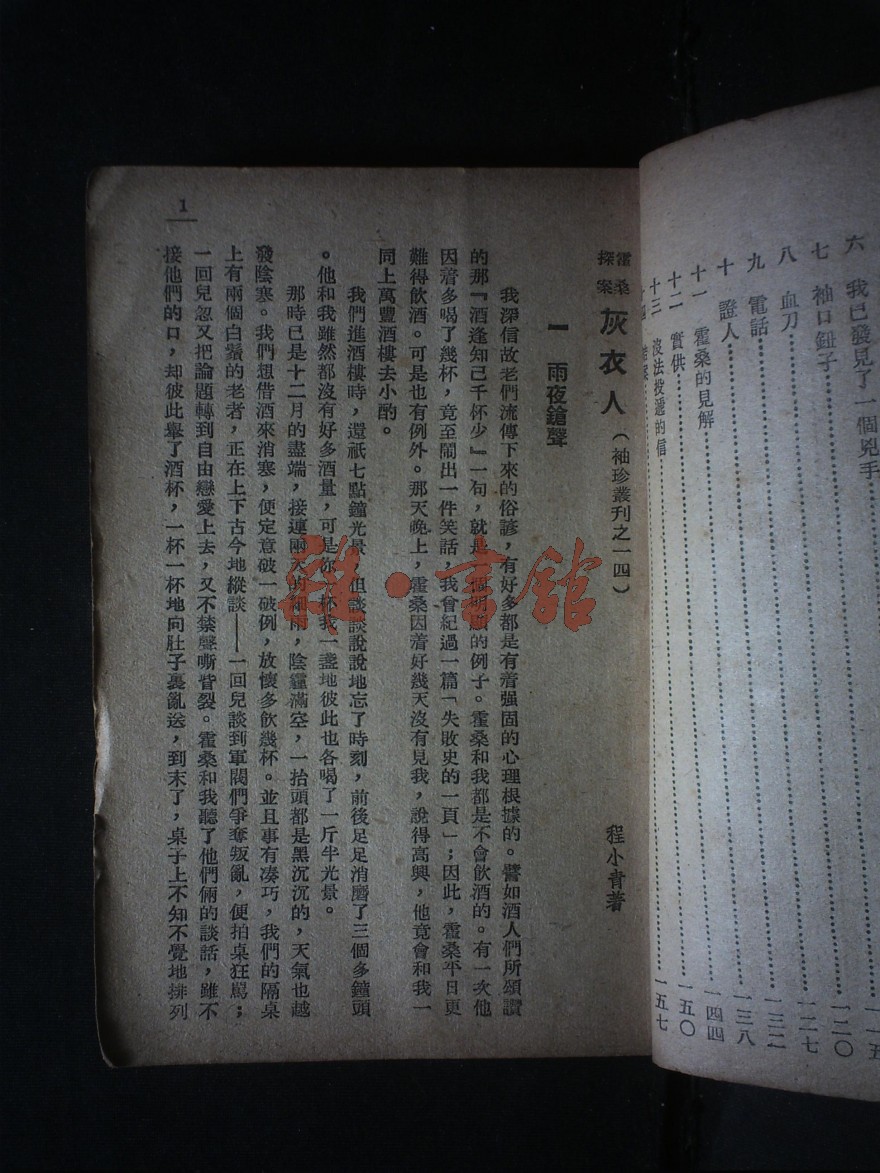 六 我已發見了一個兇手……一一五
七 袖口鈕子……一二〇
八 血刀……一二七
九 電話……一三二
十 證人……一三八
十一 霍桑的見解……一四四
十二 實供……一五〇
十三 沒法投遞的信……一五七
霍桑探案 灰衣人(袖珍叢刊之一四) 程小青著
一 雨夜鎗聲
我深信故老們流傳下來的俗諺,有好多都是有着强固的心理根據的。譬如酒人們所頌讚
的那『酒逢知己千杯少』一句,就是一個明顯的例子。霍桑和我都是不會飲酒的。有一次他
因着多喝了幾杯,竟至鬧出一件笑話,我曾紀過一篇「失敗史的一頁」;因此,霍桑平日更
難得飲酒。可是也有例外。那天晚上,霍桑因着好幾天沒有見我,說得高興,他竟會和我一
同上萬豐酒樓去小酌。
我們進酒樓時,還祇七點鐘光景,但談談說說地忘了時刻,前後足足消磨了三個多鐘頭
。他和我雖然都沒有好多酒量,可是你一杯我一盞地彼此也各喝了一斤半光景。
那時已是十二月的盡端,接連兩天的細雨,陰霾滿空,一抬頭都是黑沉沉的,天氣也越
發陰寒。我們想借酒來消寒,便定意破一破例,放懷多飲幾杯。並且事有凑巧,我們的隔桌
上有兩個白鬚的老者,正在上下古今地縱談——一回兒談到軍閥們爭奪叛亂,便拍桌狂罵;
一回兒忽又把論題轉到自由戀愛上去,又不禁聲嘶眥裂。霍桑和我聽了他們倆的談話,雖不
接他們的口,却彼此舉了酒杯,一杯一杯地向肚子裏亂送,到末了,桌子上不知不覺地排列
1
雜·書館